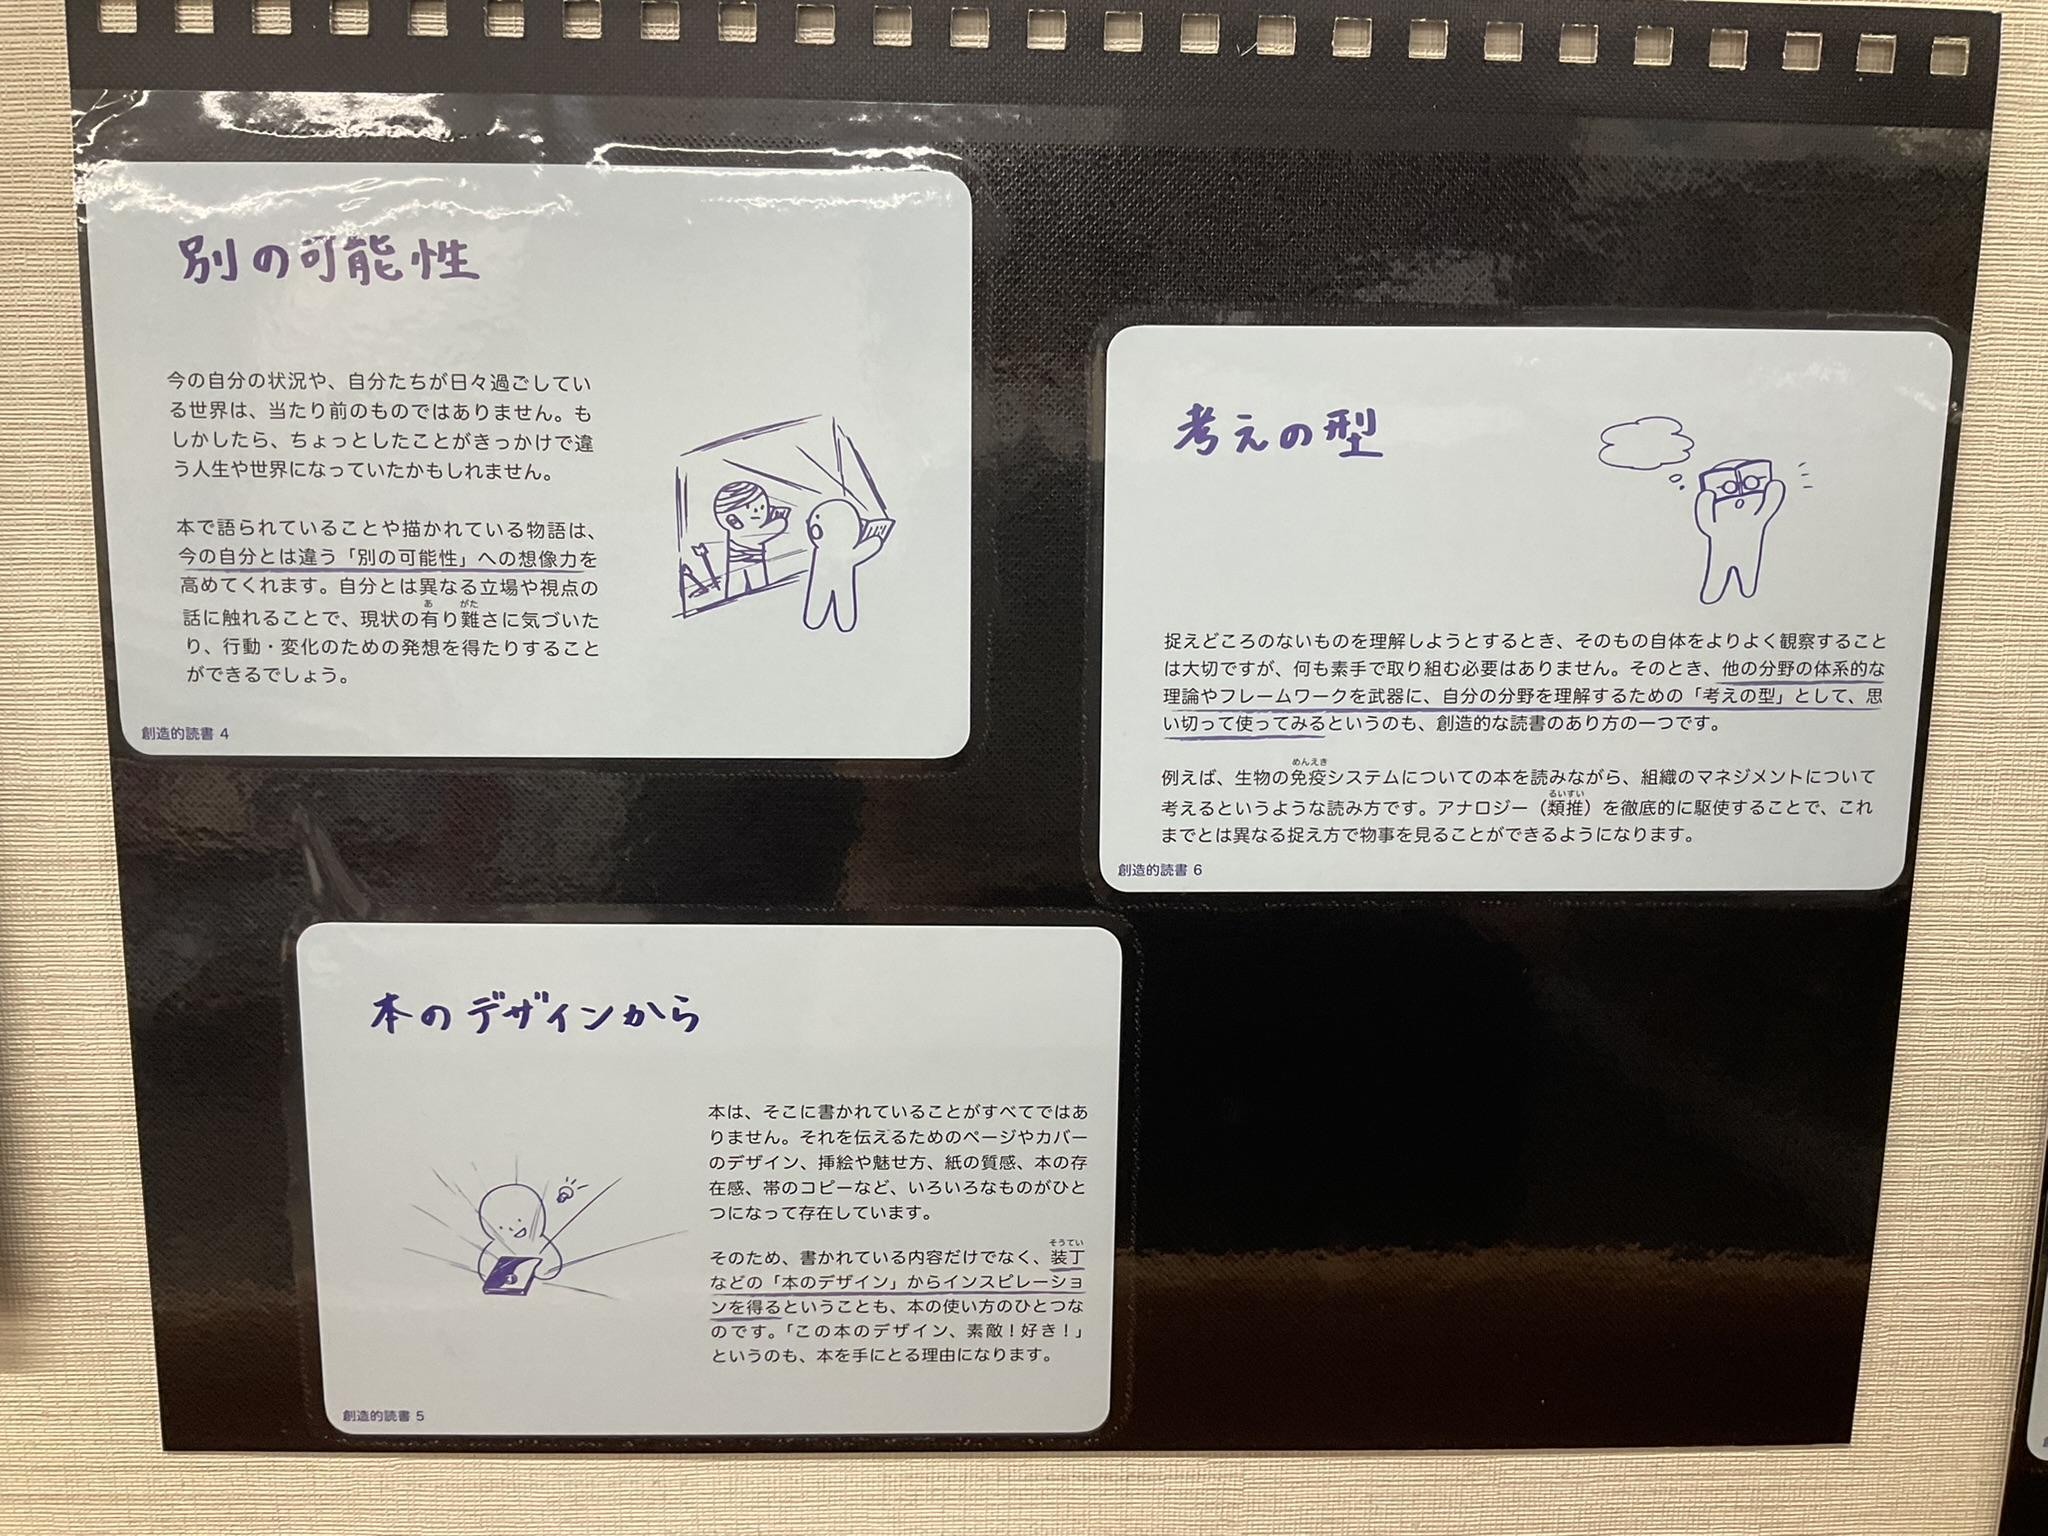 別の可能性
今の自分の状況や、自分たちが日々過ごしてい
る世界は、当たり前のものではありません。も
しかしたら、ちょっとしたことがきっかけで違
う人生や世界になっていたかもしれません。
本で語られていることや描かれている物語は、
今の自分とは違う「別の可能性」への想像力を
高めてくれます。自分とは異なる立場や視点の
あ がた
話に触れることで、現状の有り難さに気づいた
り、行動・変化のための発想を得たりすること
ができるでしょう。
創造的読書 4
考えの型
捉えどころのないものを理解しようとするとき、そのもの自体をよりよく観察すること
は大切ですが、何も素手で取り組む必要はありません。そのとき、他の分野の体系的な
理論やフレームワークを武器に、自分の分野を理解するための「考えの型」として、思
い切って使ってみるというのも、創造的な読書のあり方の一つです。
めんえき
例えば、生物の免疫システムについての本を読みながら、組織のマネジメントについて
るいすい
考えるというような読み方です。アナロジー（類推）を徹底的に駆使することで、これ
までとは異なる捉え方で物事を見ることができるようになります。
創造的読書 6
本のデザインから
本は、そこに書かれていることがすべてではあ
りません。それを伝えるためのページやカバー
のデザイン、挿絵や魅せ方、紙の質感、本の存
在感、帯のコピーなど、いろいろなものがひと
つになって存在しています。
そうてい
そのため、書かれている内容だけでなく、装丁
などの「本のデザイン」からインスピレーショ
ンを得るということも、本の使い方のひとつな
のです。「この本のデザイン、素敵！好き！」
というのも、本を手にとる理由になります。
創造的読書 5